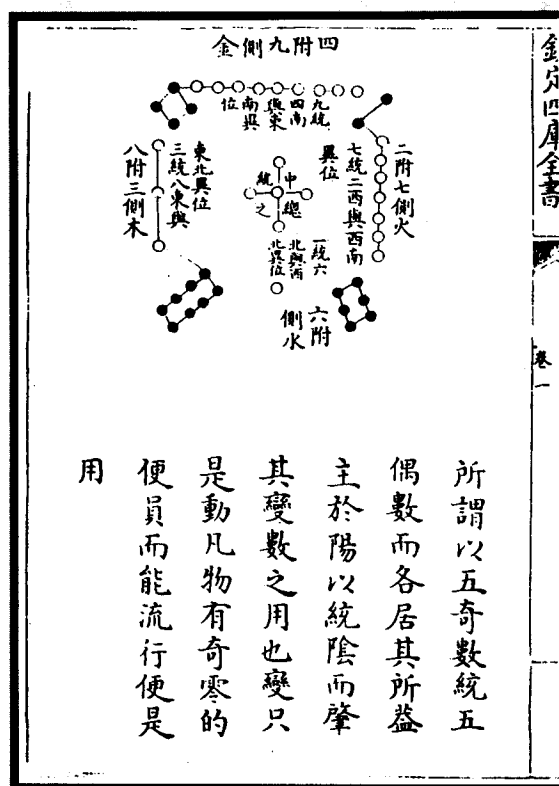 欽定四庫全書
卷一
四附九側金
九統
四南
與東
南異
位
二附七側火
七統二西與西南
異位
中總
統之
一統六
北與西
北異位
六附
側水
三統八東與
東北異位
八附三側木
所謂以五奇數統五
偶數而各居其所葢
主於陽以統陰而肇
其變數之用也變只
是動凡物有奇零的
便員而能流行便是
用